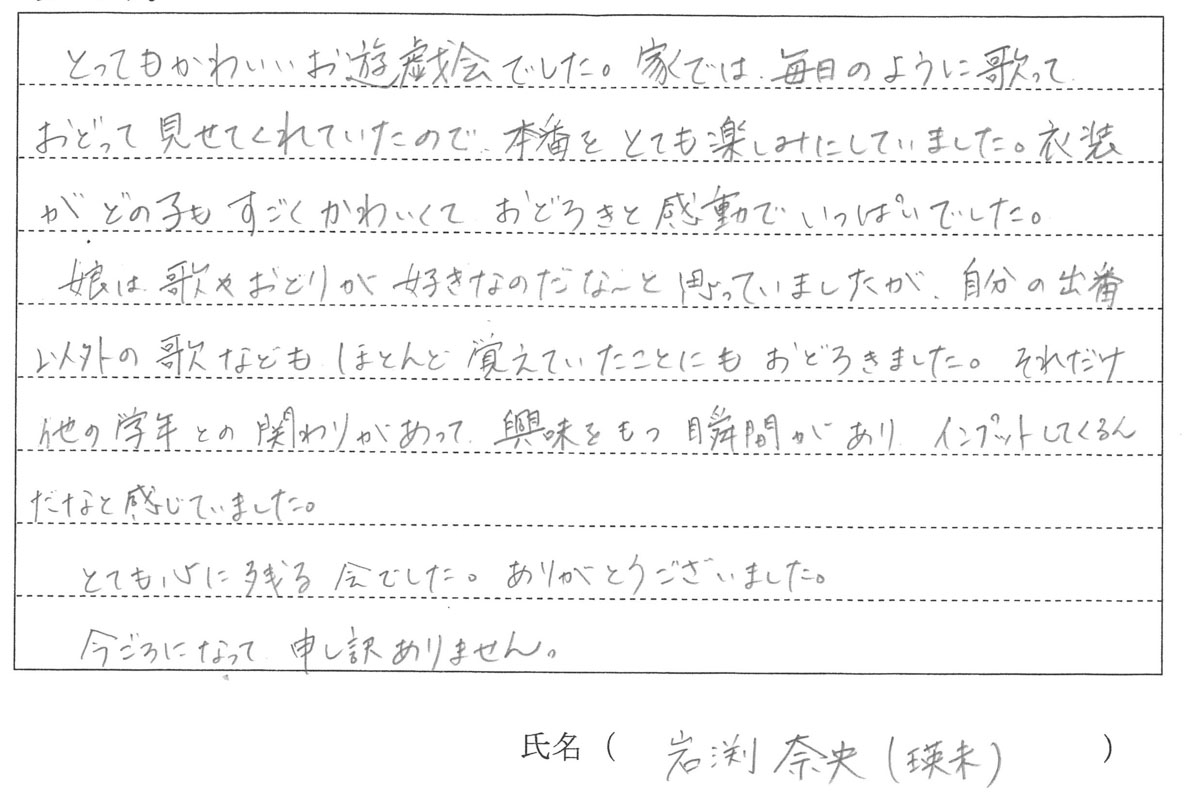 とってもかわいいお遊戯会でした。家では、毎日のように歌って
おどって見せてくれていたので、本番をとても楽しみにしていました。衣装
がどの子もすごくかわいくて、おどろきと感動でいっぱいでした。
娘は、歌やおどりが好きなのだな～と思っていましたが、自分の出番
以外の歌などもほとんど覚えていたことにもおどろきました。それだけ
他の学年との関わりがあって、興味をもつ瞬間があり、インプットしてくるん
だなと感じていました。
とても心に残る会でした。ありがとうございました。
今ごろになって、申し訳ありません。
氏名（ 岩渕 奈央（瑛未） ）